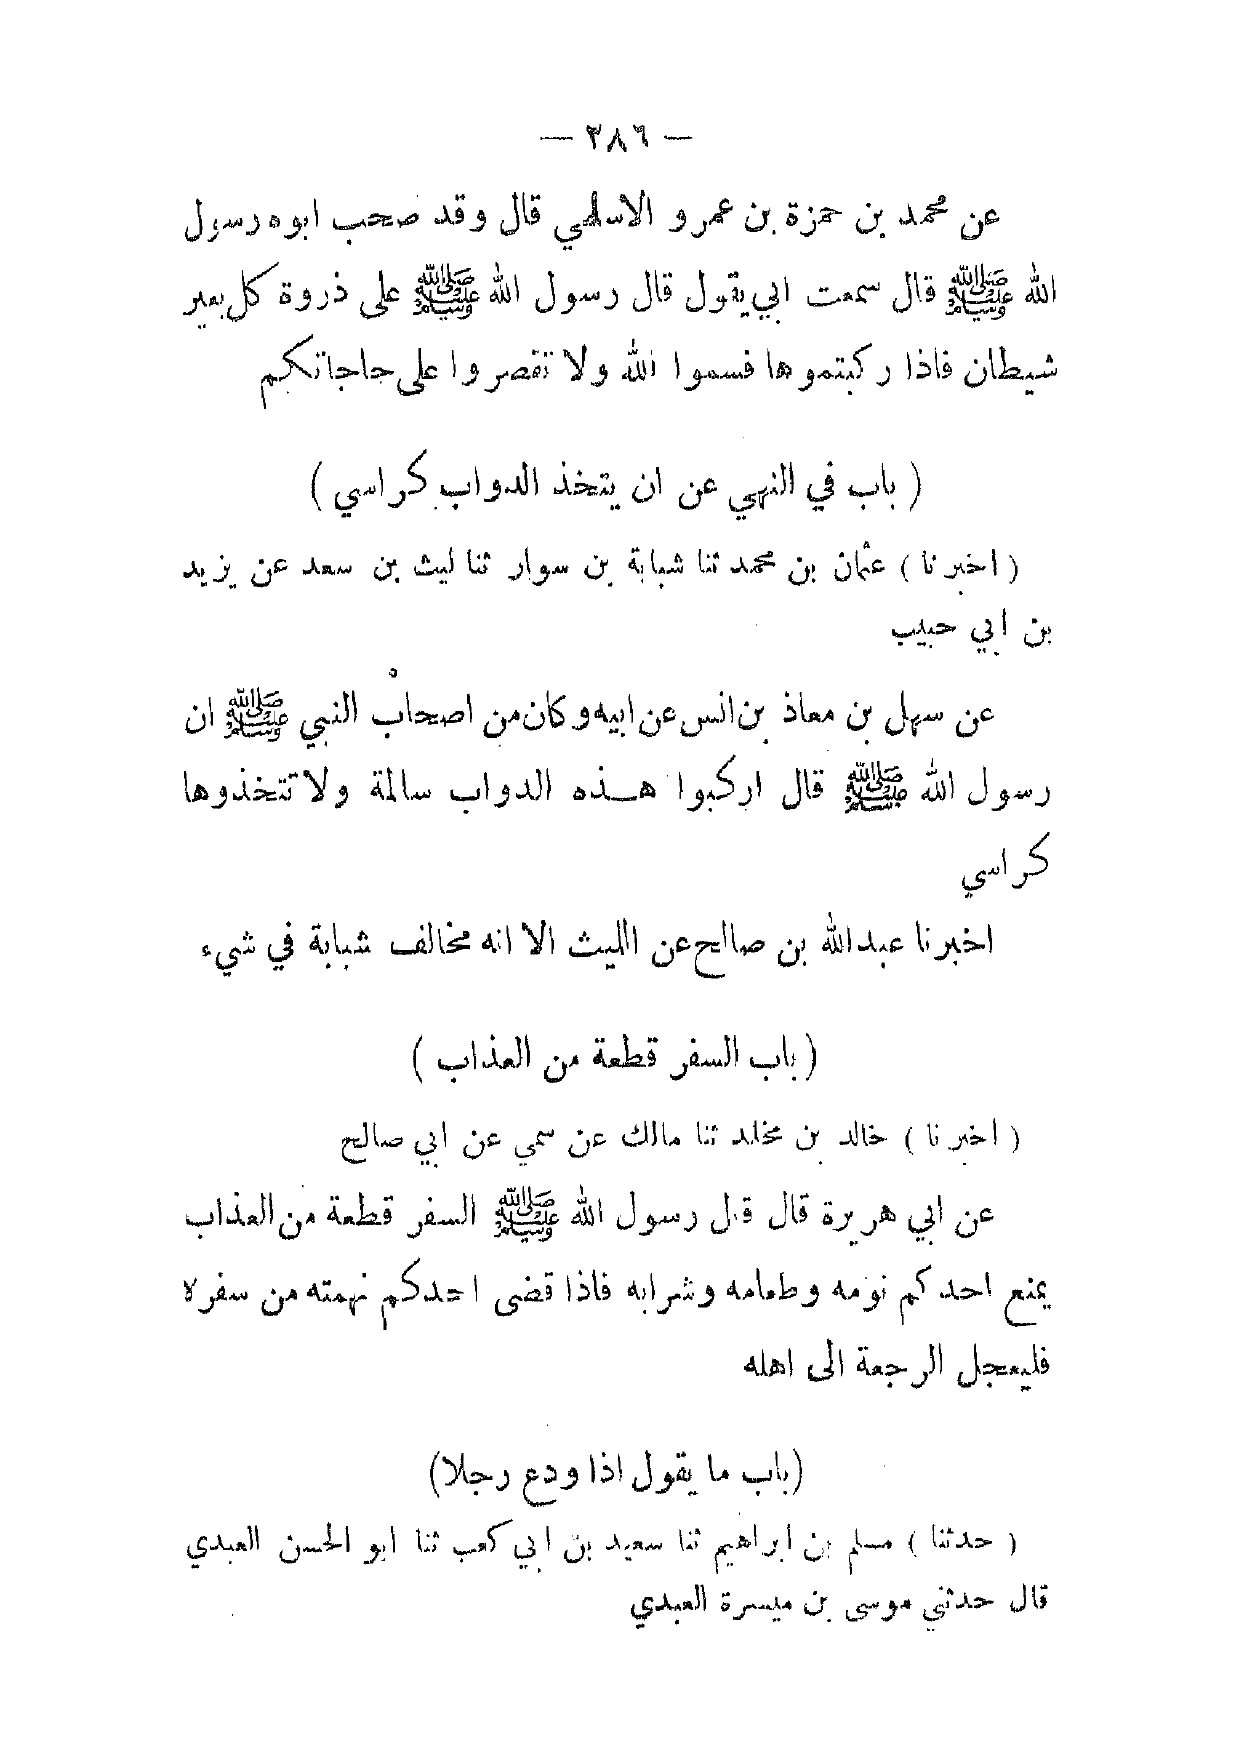 — ٢٨٦ —
عن محمد بن حمزة بن عمرو الاسلمي قال وقد صحب ابوه رسول
الله ﷺ قال سمعت ابي يقول قال رسول الله ﷺ على ذروة كل بعير
شيطان فاذا ركبتموها فسموا الله ولا تقصروا على حاجاتكم
( باب في النهي عن ان يتخذ الدواب كراسي )
( اخبرنا ) عثمان بن محمد ثنا شبابة بن سوار ثنا ليث بن سعد عن يزيد
بن ابي حبيب
عن سهل بن معاذ بن انس عن ابيه وكان من اصحاب النبي ﷺ ان
رسول الله ﷺ قال اركبوا هـذه الدواب سالمة ولا تتخذوها
كراسي
اخبرنا عبدالله بن صالح عن الليث الا انه مخالف شبابة في شيء
( باب السفر قطعة من العذاب )
( اخبرنا ) خالد بن مخلد ثنا مالك عن سمي عن ابي صالح
عن ابي هريرة قال قال رسول الله ﷺ السفر قطعة من العذاب
يمنع احدكم نومه وطعامه وشرابه فاذا قضى احدكم نهمته من سفره
فليعجل الرجعة الى اهله
(باب ما يقول اذا ودع رجلا)
( حدثنا ) مسلم بن ابراهيم ثنا سعيد بن ابي كعب ثنا ابو الحسن العبدي
قال حدثني موسى بن ميسرة العبدي